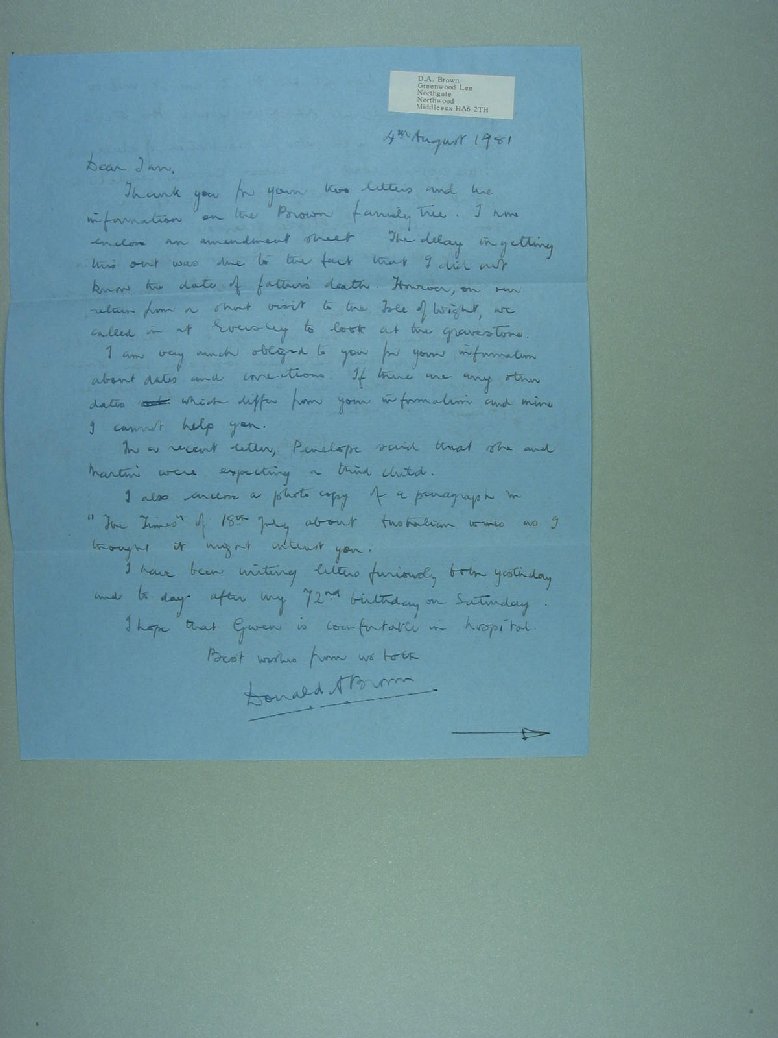 D.A. Brown
Greenwood Lea
Northgate
Northwood
Middlesex HA6 2TH
4th August 1981
Dear Ian,
Thank you for your two letters and the
information on the Brown family tree. I now
enclose an amendment sheet. The delay in getting
this out was due to the fact that I did not
know the date of father's death. However, on our
return from a short visit to the Isle of Wight, we
called in at Eversley to look at the gravestone.
I am very much obliged to you for your information
about dates and corrections. If there are any other
dates which differ from your information and mine
I cannot help you.
In a recent letter, Penelope said that she and
Martin were expecting a third child.
I also enclose a photo copy of a paragraph in
"The Times" of 18th July about Australian wines as I
thought it might interest you.
I have been writing letters furiously both yesterday
and to day after my 72nd birthday on Saturday.
I hope that Gwen is comfortable in hospital
Best wishes from us both
Donald A Brown